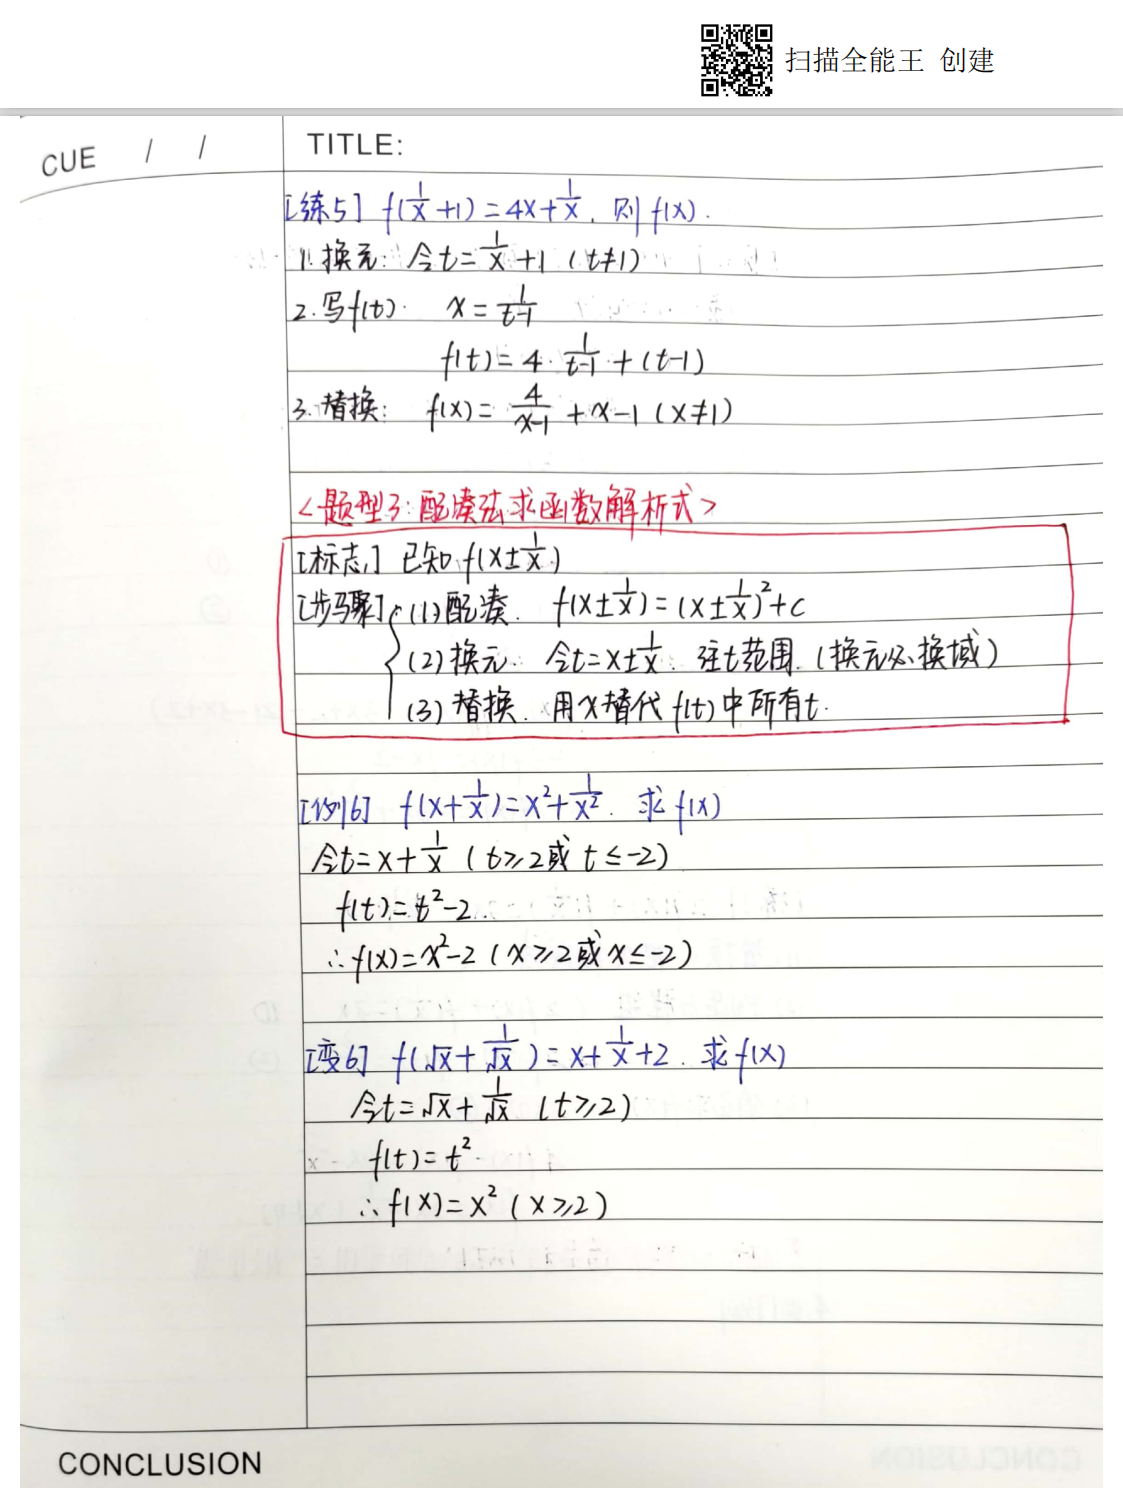 扫描全能王 创建
CUE / /
TITLE:
[练5] f(1/x +1) = 4x + 1/x. 则f(x).
1. 换元: 令t = 1/x + 1 (t≠1)
2. 写f(t). x = 1/(t-1)
f(t) = 4 · 1/(t-1) + (t-1)
3. 替换: f(x) = 4/(x-1) + x-1 (x≠1)
<题型3: 配凑法求函数解析式>
[标志] 已知f(x±1/x)
[步骤] (1) 配凑. f(x±1/x) = (x±1/x)²+c
(2) 换元. 令t=x±1/x. 注t范围. (换元必换域)
(3) 替换. 用x替代f(t)中所有t.
[例6] f(x+1/x) = x²+1/x². 求f(x)
令t=x+1/x (t≥2或t≤-2)
f(t)=t²-2.
∴f(x)=x²-2 (x≥2或x≤-2)
[变6] f(√x+1/√x) = x+1/x+2. 求f(x)
令t=√x+1/√x (t≥2)
f(t)=t²
∴f(x)=x² (x≥2)
CONCLUSION